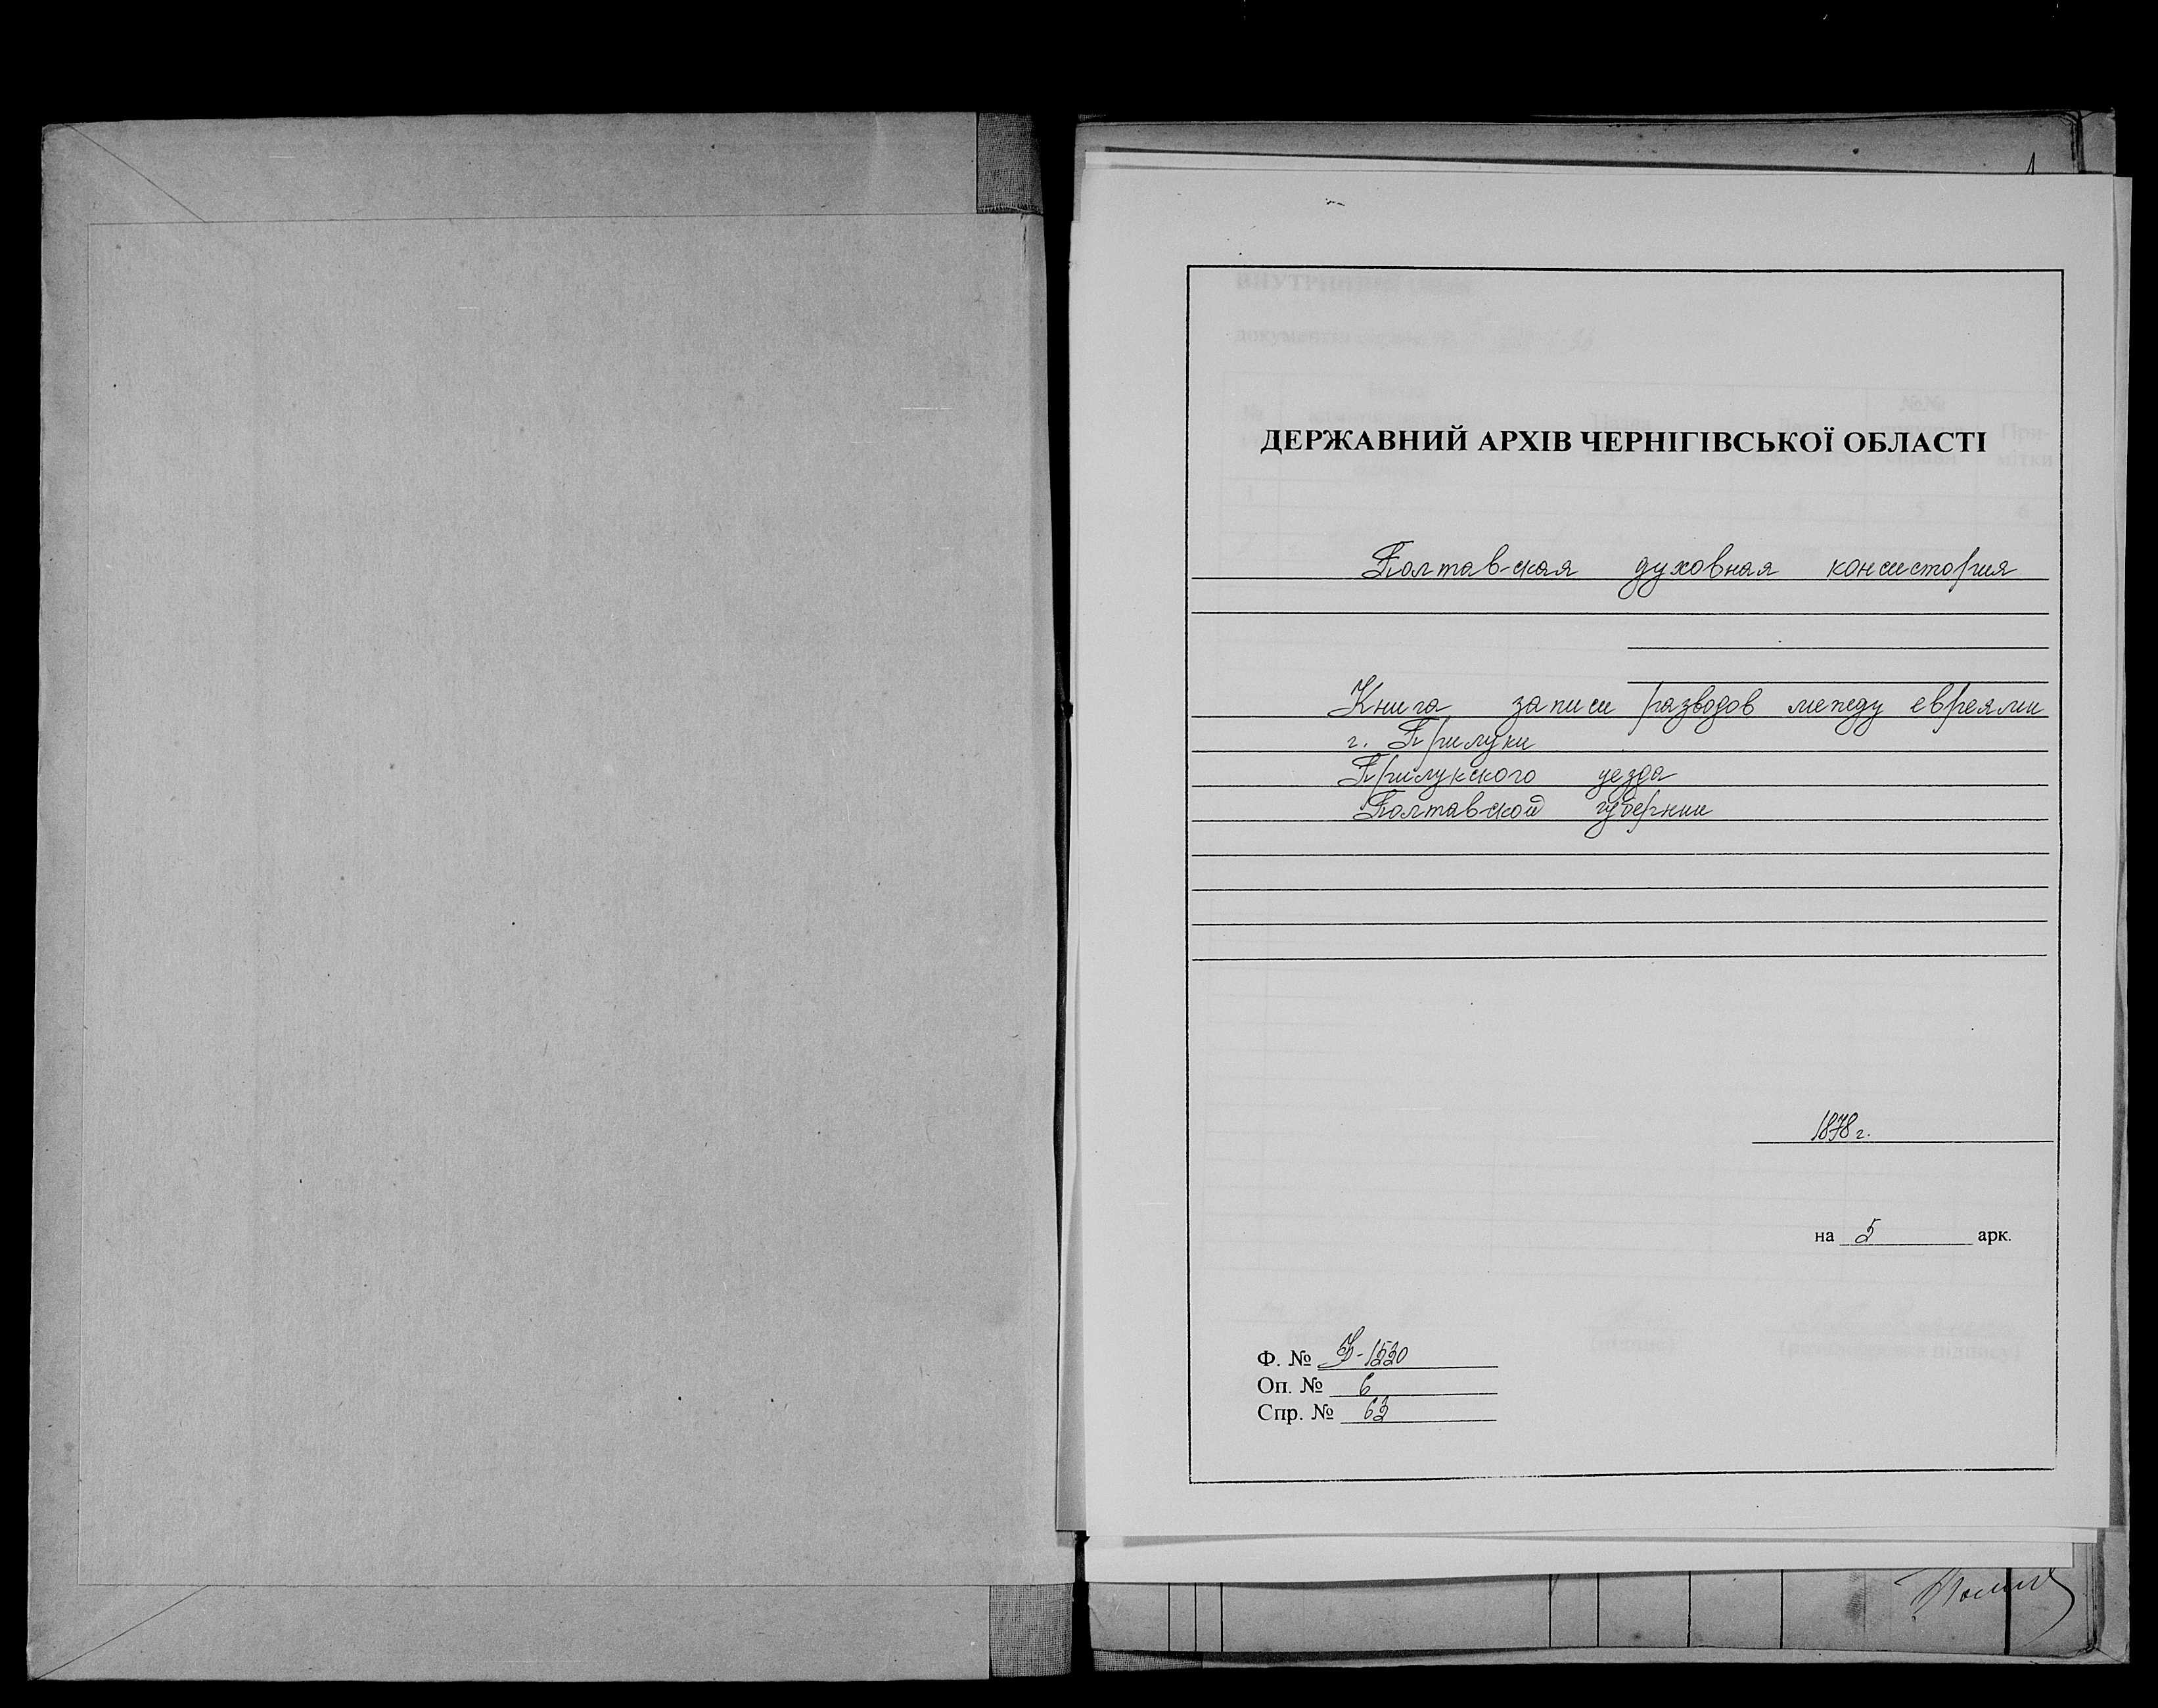 ДЕРЖАВНИЙ АРХІВ ЧЕРНІГІВСЬКОЇ ОБЛАСТІ
Полтавская духовная консистория
Книга записи разводов между евреями
г. Прилуки
Прилукского уезда
Полтавской губернии
1878 г.
на 5 арк.
Ф. № Ф-1520
Оп. № 6
Спр. № 62